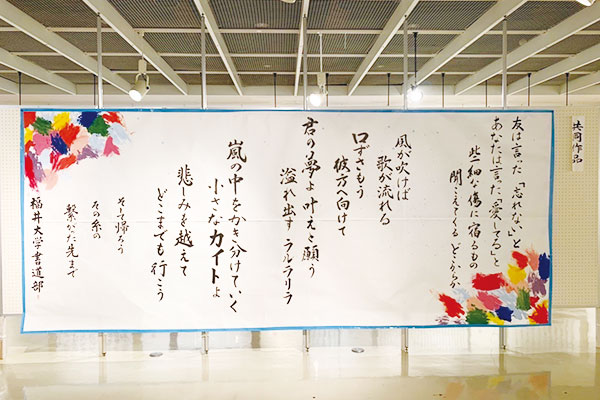 共同作品
友は言った「忘れない」と
あなたは言った「愛してる」と
些細な傷に宿るもの
聞こえてくる どこからか
風が吹けば
歌が流れる
口ずさもう
彼方へ向けて
君の夢よ叶えと願う
溢れ出す ラルラリラ
嵐の中をかき分けていく
小さなカイトよ
悲しみを越えて
どこまでも行こう
そして帰ろう
その糸の
繋がった先まで
福井大学書道部